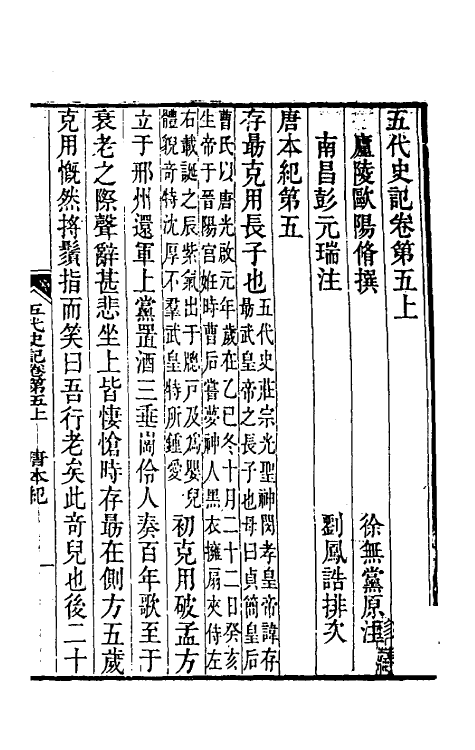 五代史記卷第五上
廬陵歐陽脩撰　徐無黨原注
南昌彭元瑞注　劉鳳誥排次
唐本紀第五
存勗克用長子也五代史莊宗光聖神閔孝皇帝諱存
勗武皇帝之長子也母曰貞簡皇后
曹氏以唐光啟元年歲在乙巳冬十月二十二日癸亥
生帝于晉陽宫妊時曹后嘗夢神人黑衣擁扇夾侍左
右載誕之辰紫氣出于牕戸及爲嬰兒
體貎奇特沈厚不羣武皇特所鍾愛
初克用破孟方
立于邢州還軍上黨置酒三垂崗伶人奏百年歌至于
衰老之際聲辭甚悲坐上皆悽愴時存勗在側方五歲
克用慨然捋鬚指而笑曰吾行老矣此奇兒也後二十
五代史記卷第五上　唐本紀　一